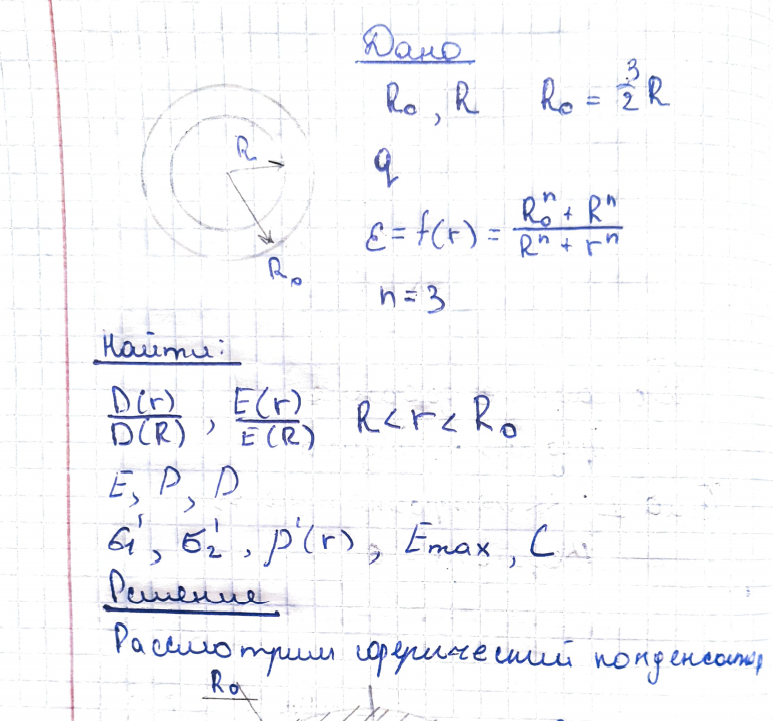 Дано
R₀, R R₀ = 3/2 R
q
ε = f(r) = (R₀ⁿ + Rⁿ)/(Rⁿ + rⁿ)
n = 3
R
R₀
Найти:
D(r)/D(R), E(r)/E(R) R < r < R₀
E, P, D
σ₁', σ₂', ρ'(r), Emax, C
Решение
Рассмотрим сферический конденсатор
R₀